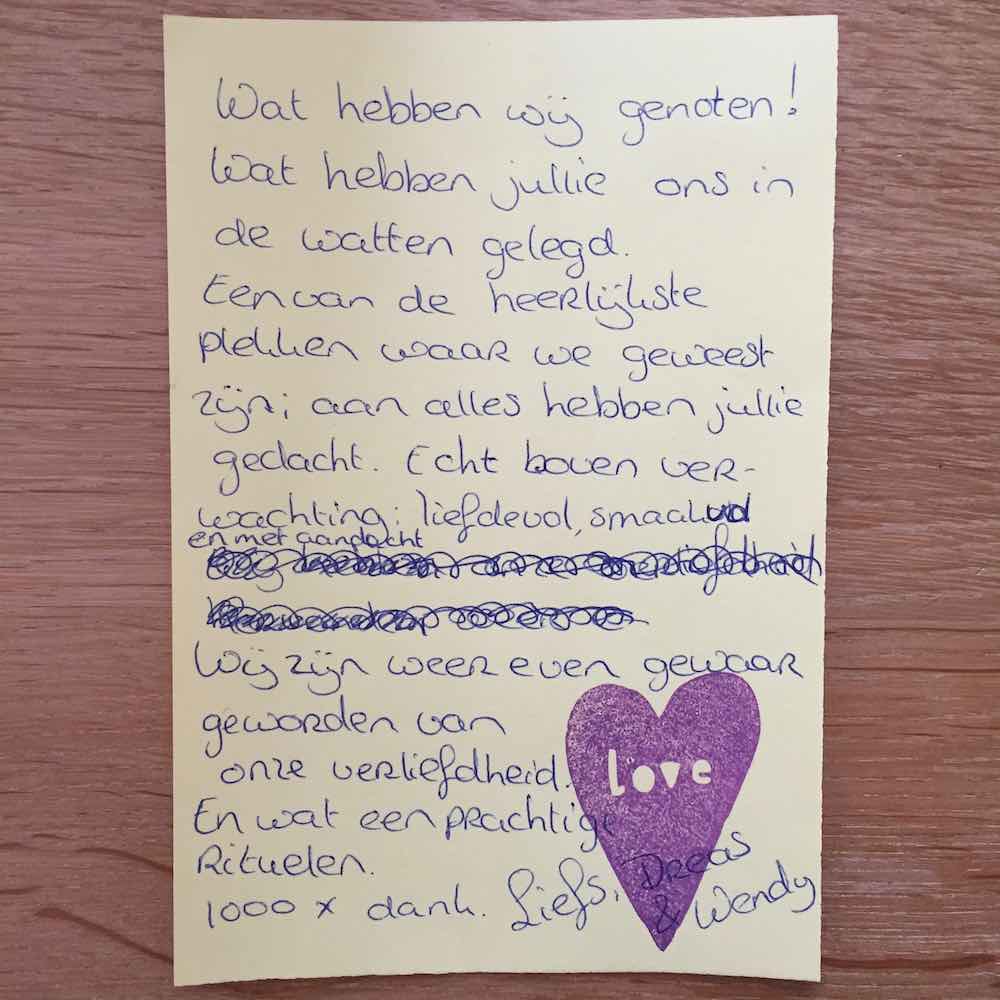 Wat hebben wij genoten!
Wat hebben jullie ons in
de watten gelegd.
Een van de heerlijkste
plekken waar we geweest
zijn; aan alles hebben jullie
gedacht. Echt boven ver-
wachting: liefdevol, smaakvol
en met aandacht
Wij zijn weer even gewaar
geworden van
onze verliefdheid.
love
En wat een prachtige
Rituelen.
1000 x dank. Liefs, Dreas
& Wendy